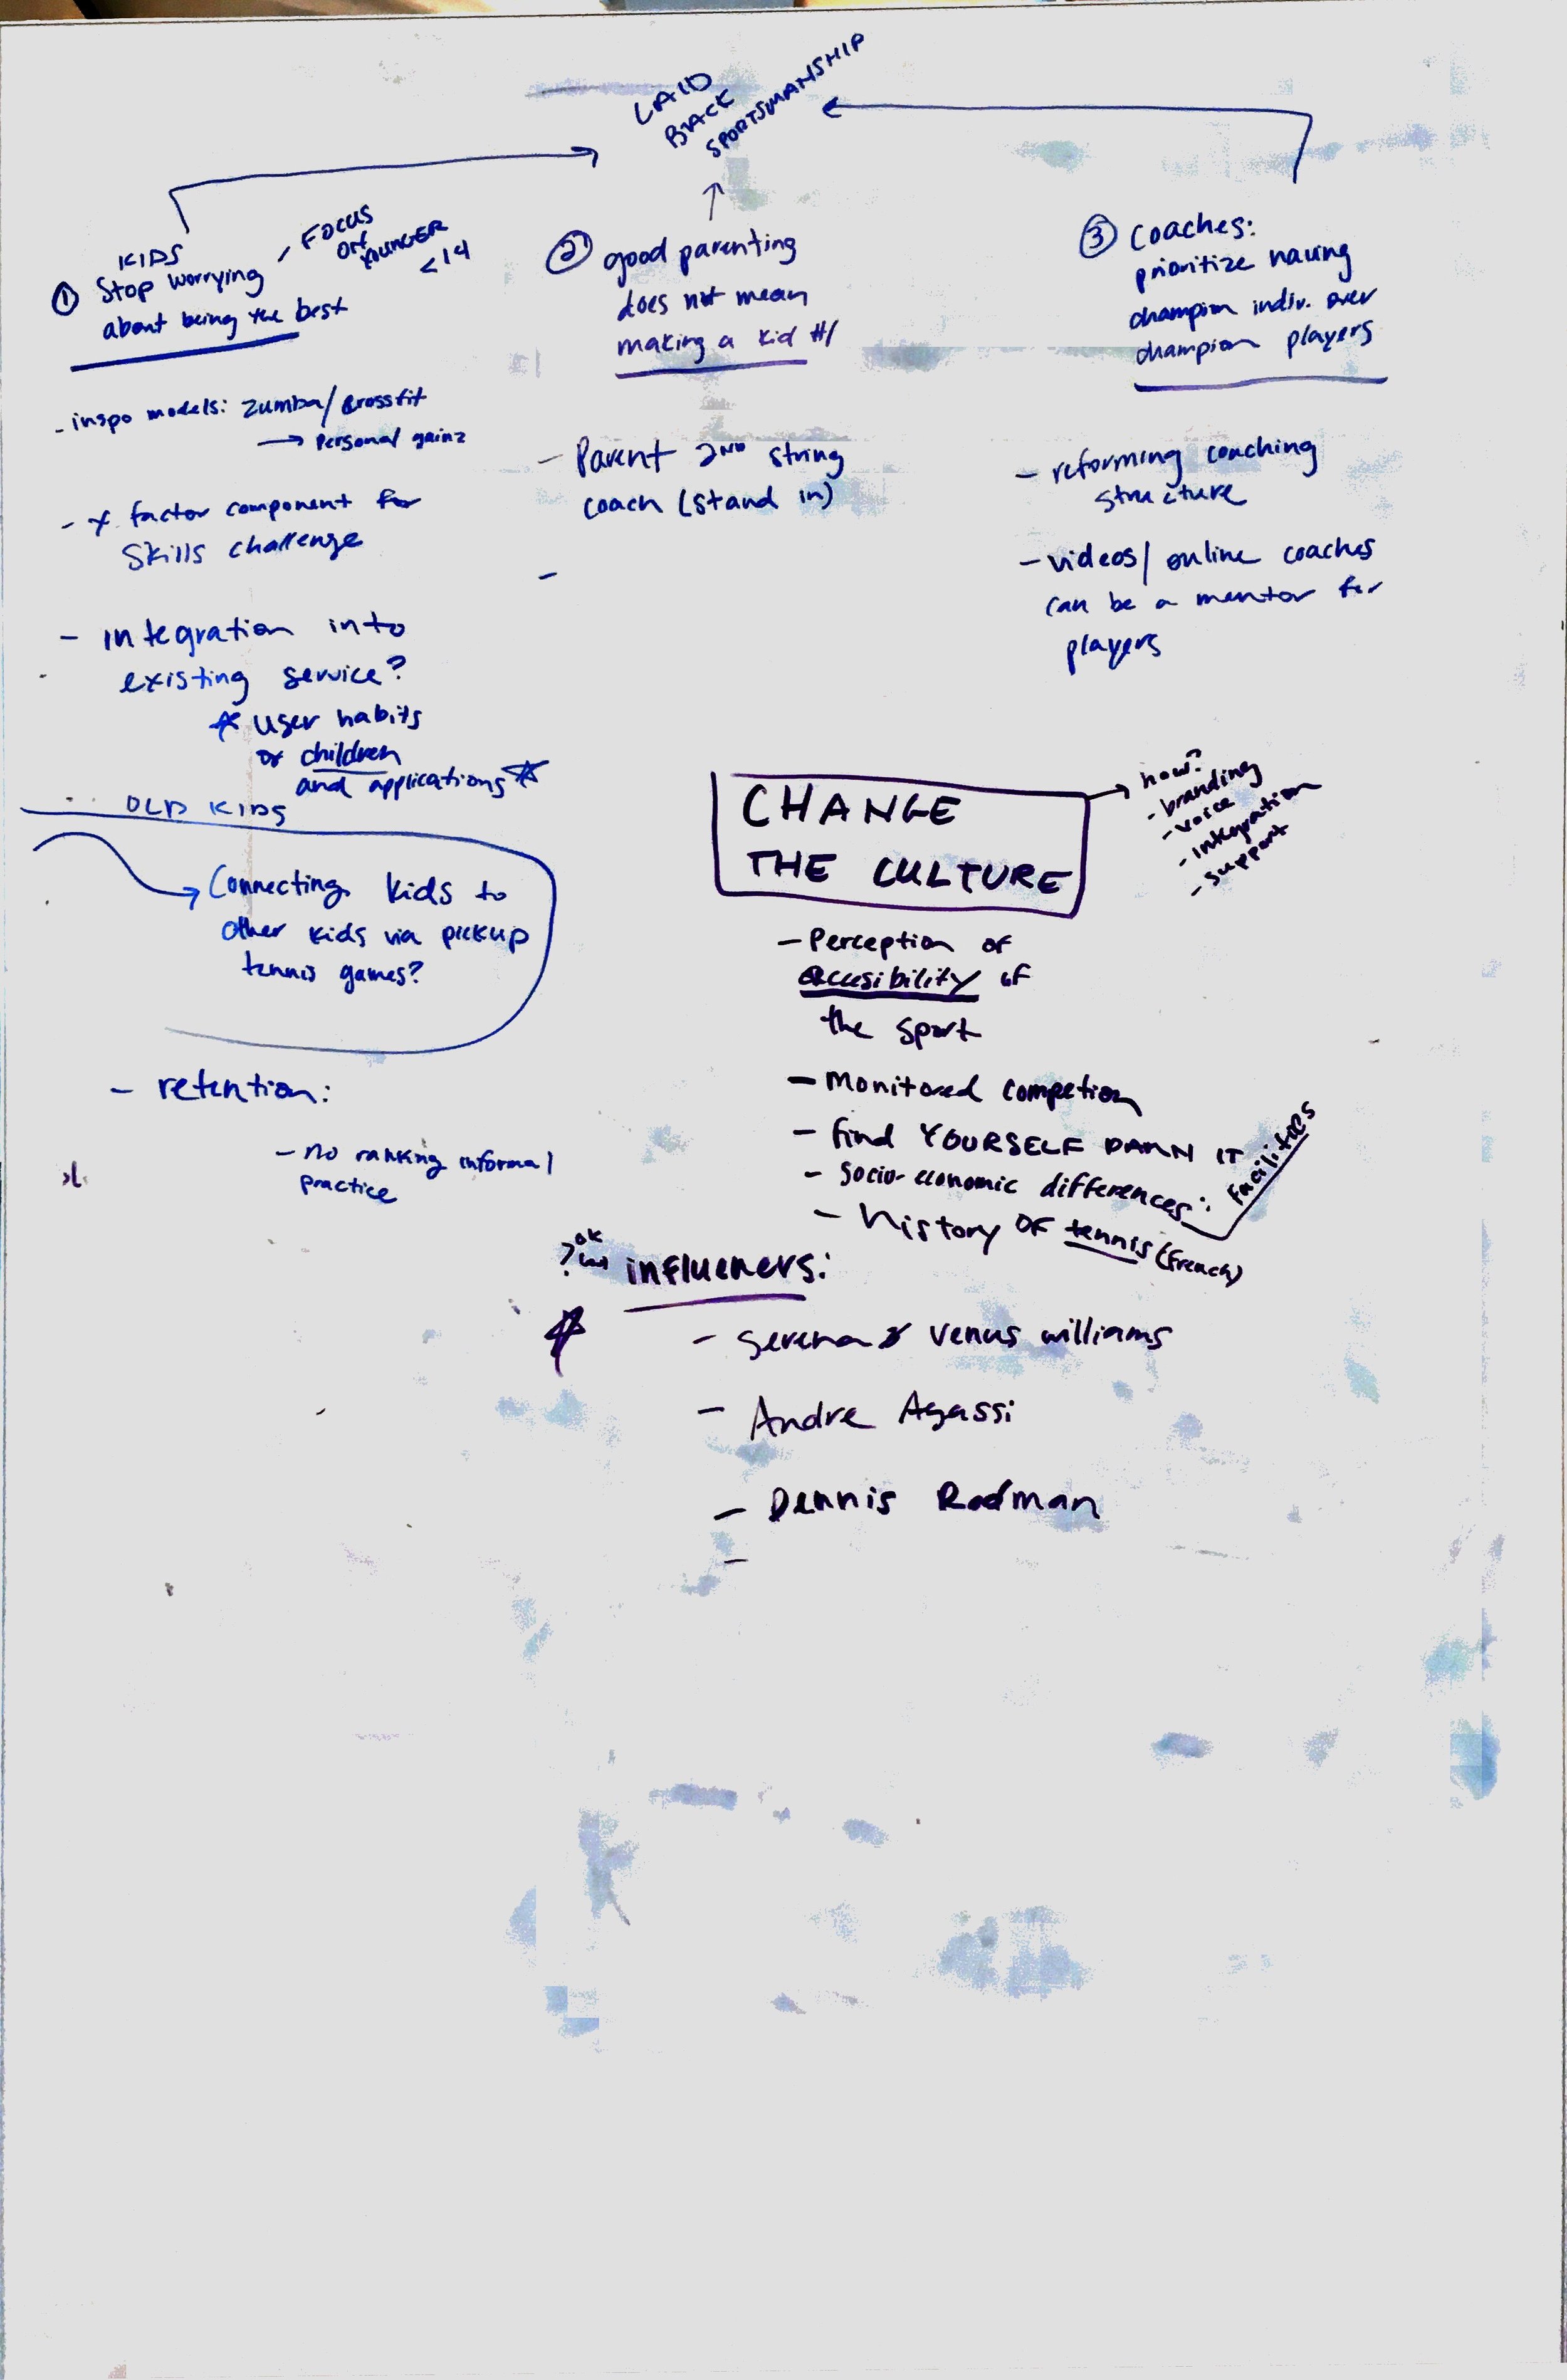 LAID
BACK
SPORTSMANSHIP
KIDS
① Stop worrying
about being the best
- FOCUS
ON
YOUNGER
<14
- inspo models: Zumba/Crossfit
→ Personal gainz
- X factor component for
Skills challenge
- integration into
existing service?
* user habits
of children
and applications *
OLD KIDS
→ Connecting kids to
other kids via pickup
tennis games?
- retention:
- no ranking informal
practice
② good parenting
does not mean
making a kid #1
- Parent 2ND string
coach (stand in)
-
③ Coaches:
prioritize having
champion indiv. over
champion players
- reforming coaching
structure
- videos/online coaches
can be a mentor for
players
CHANGE
THE CULTURE
→ how?
- branding
- voice
- integration
- support
- Perception of
accesibility of
the sport
- Monitored competion
- find YOURSELF DAMN IT
- Socio-economic differences: facilities
- history OF tennis (French)
influeners:
- Serena & Venus williams
- Andre Agassi
- Dennis Rodman
-